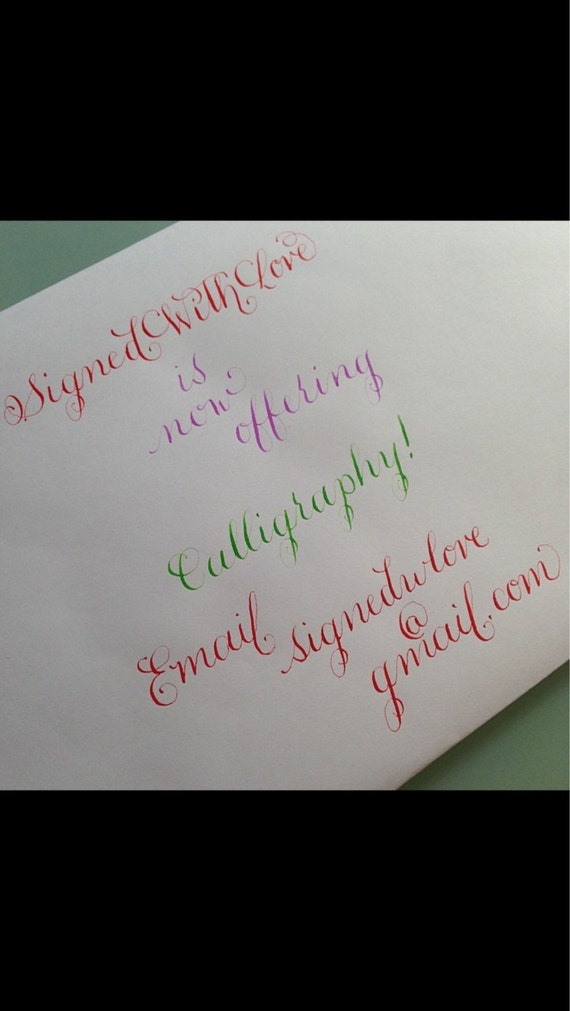 SignedWithLove
is
now
offering
Calligraphy!
Email signedwlove
@
gmail.com